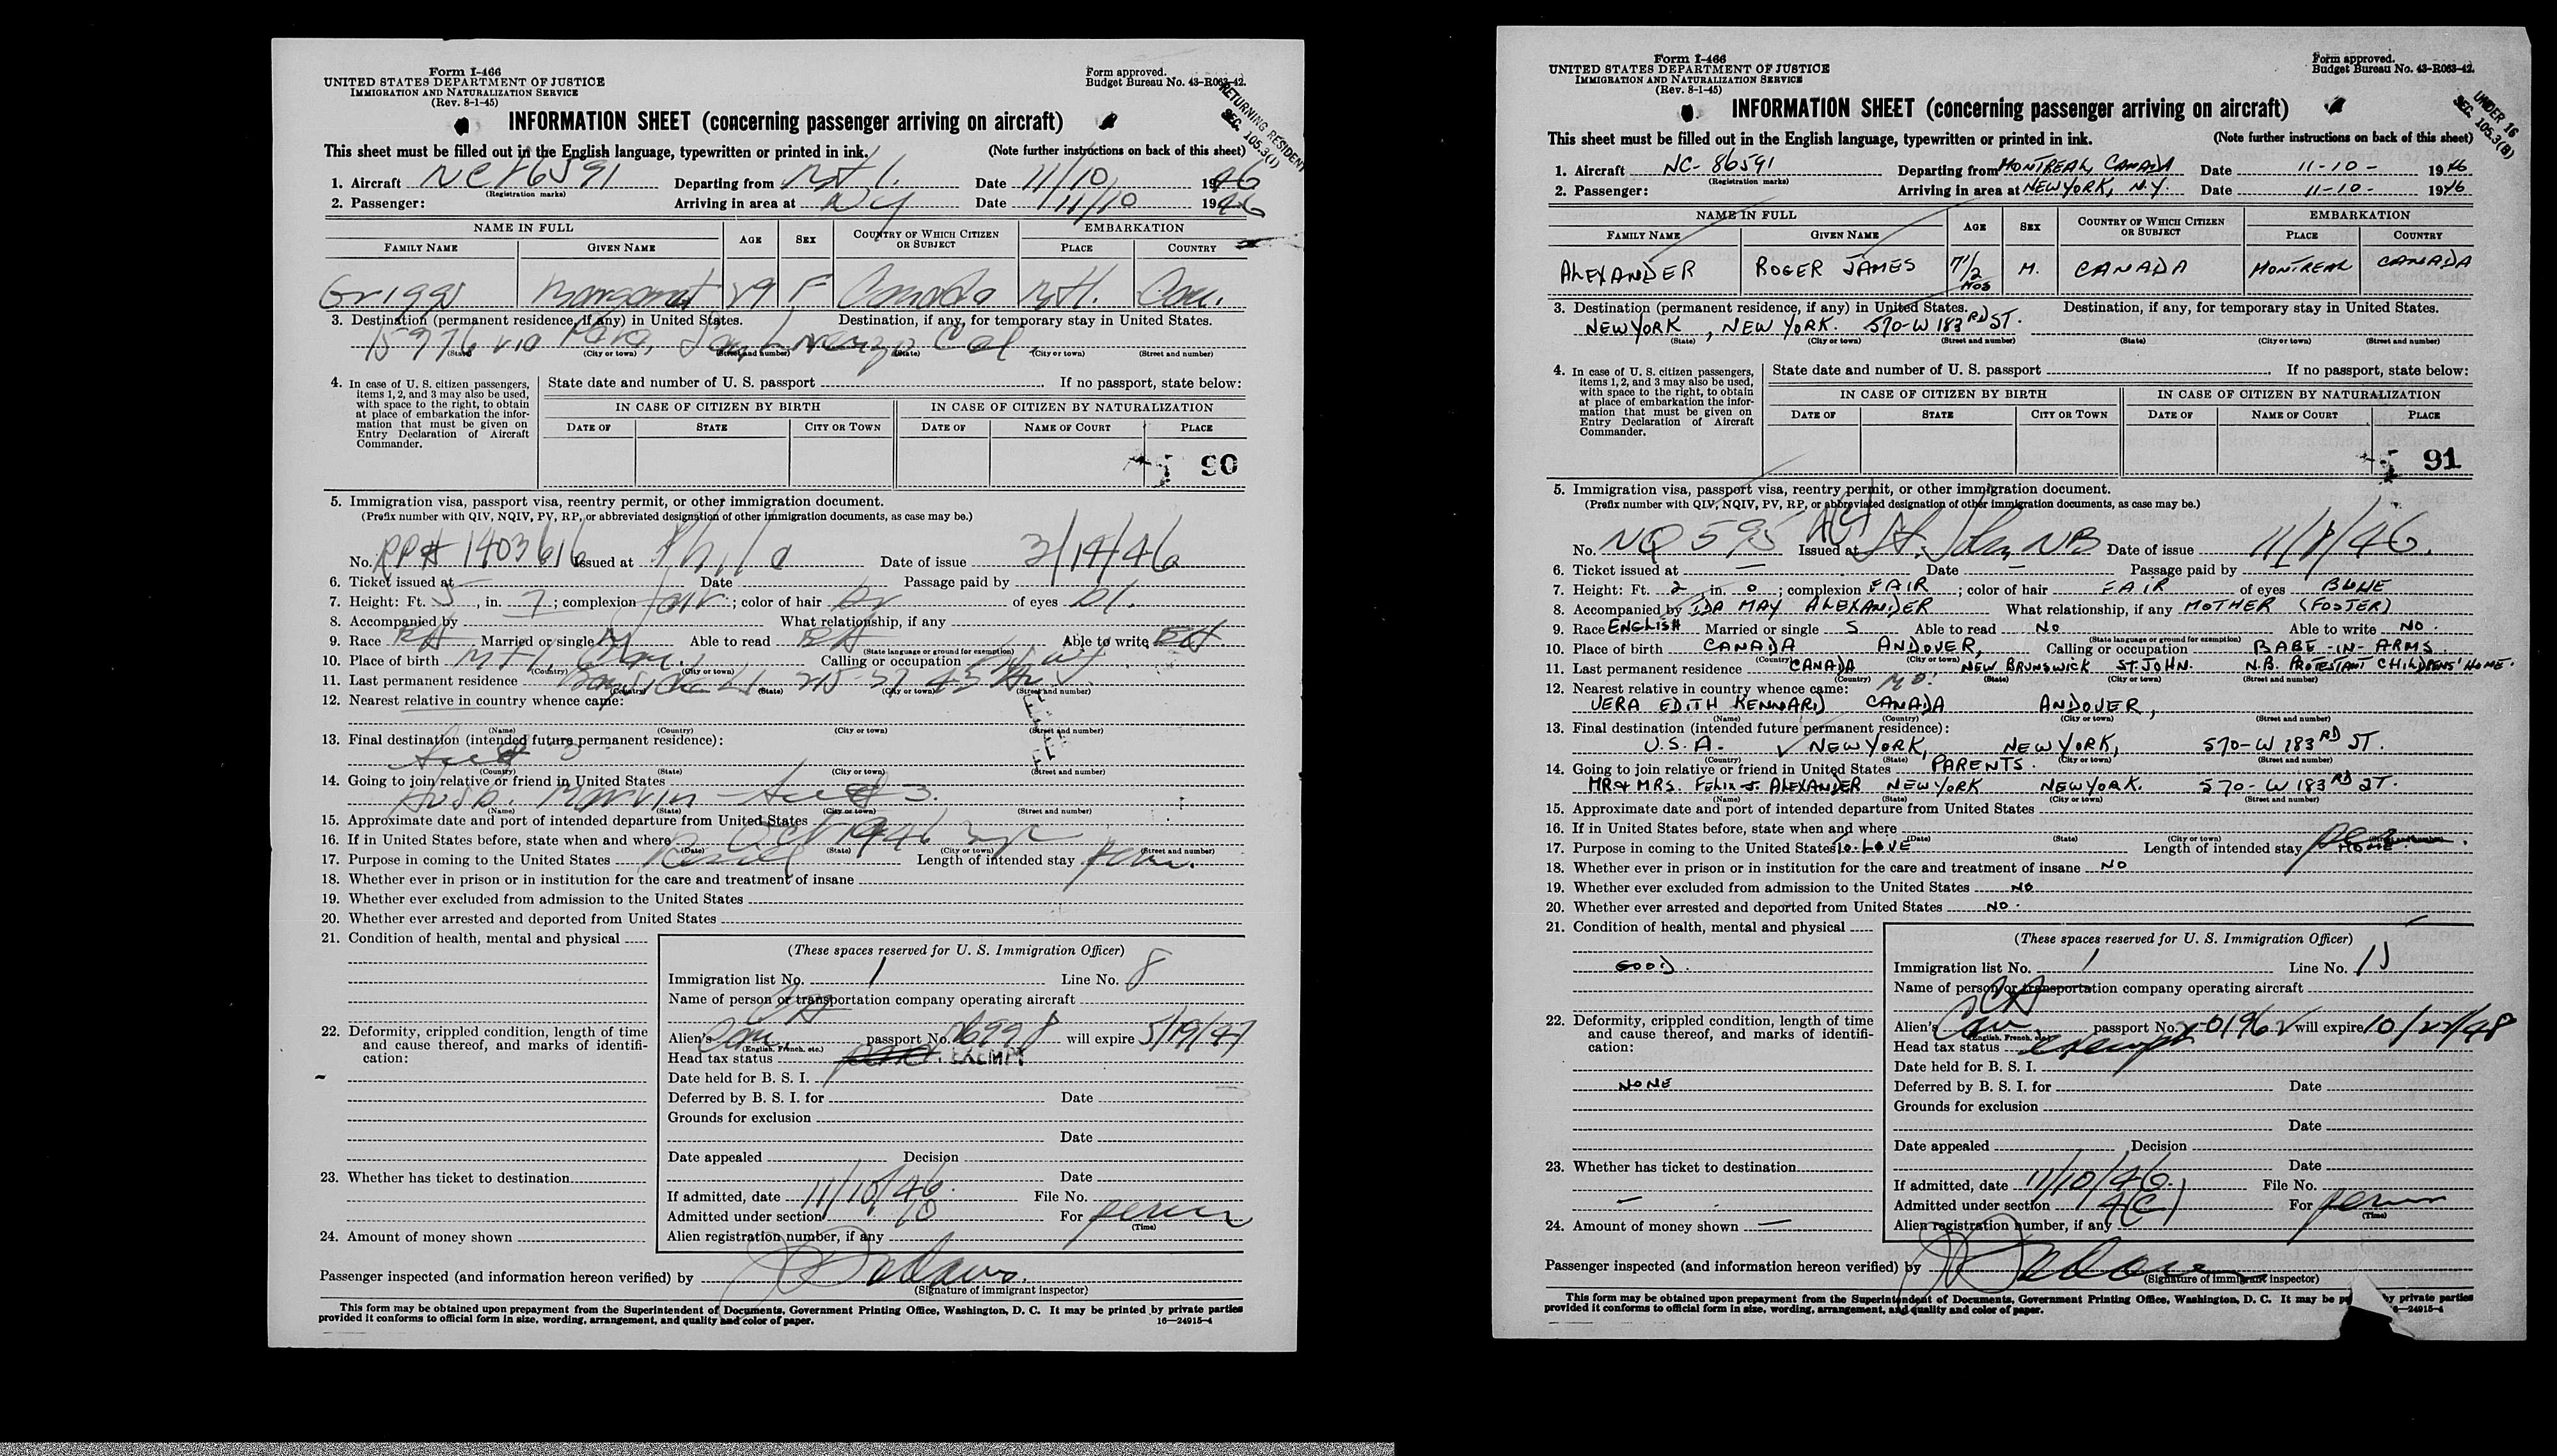 Form I-466
UNITED STATES DEPARTMENT OF JUSTICE
IMMIGRATION AND NATURALIZATION SERVICE
(Rev. 8-1-45)
Form approved.
Budget Bureau No. 43-R063-42.
RETURNING RESIDENT
SEC. 105.3(1)
INFORMATION SHEET (concerning passenger arriving on aircraft)
This sheet must be filled out in the English language, typewritten or printed in ink.
(Note further instructions on back of this sheet)
1. Aircraft NC 86591 Departing from Mtl. Date 11/10 1946
(Registration marks)
2. Passenger: Arriving in area at NY Date 11/10 1946
NAME IN FULL AGE SEX COUNTRY OF WHICH CITIZEN OR SUBJECT EMBARKATION
FAMILY NAME GIVEN NAME PLACE COUNTRY
Griggs Margaret 29 F Canada Mtl. Can.
3. Destination (permanent residence, if any) in United States. Destination, if any, for temporary stay in United States.
15976 via San Lorenzo Cal.
(State) (City or town) (Street and number) (State) (City or town) (Street and number)
4. In case of U. S. citizen passengers, items 1, 2, and 3 may also be used, with space to the right, to obtain at place of embarkation the information that must be given on Entry Declaration of Aircraft Commander.
State date and number of U. S. passport If no passport, state below:
IN CASE OF CITIZEN BY BIRTH IN CASE OF CITIZEN BY NATURALIZATION
DATE OF STATE CITY OR TOWN DATE OF NAME OF COURT PLACE
90
5. Immigration visa, passport visa, reentry permit, or other immigration document.
(Prefix number with QIV, NQIV, PV, RP, or abbreviated designation of other immigration documents, as case may be.)
No. RP# 1403616 Issued at Phila Date of issue 3/14/46
6. Ticket issued at Date Passage paid by
7. Height: Ft. 5, in. 7; complexion fair; color of hair br of eyes bl.
8. Accompanied by What relationship, if any
9. Race Married or single M Able to read Able to write
(State language or ground for exemption)
10. Place of birth Mtl. Can. Calling or occupation
(Country) (City or town)
11. Last permanent residence Bayside LI 215-37 43
(Country) (State) (City or town) (Street and number)
12. Nearest relative in country whence came:
(Name) (Country) (City or town) (Street and number)
13. Final destination (intended future permanent residence):
3
(Country) (State) (City or town) (Street and number)
14. Going to join relative or friend in United States
Husb. Marvin 3.
(Name) (State) (City or town) (Street and number)
15. Approximate date and port of intended departure from United States
16. If in United States before, state when and where Oct 1946
(Date) (State) (City or town) (Street and number)
17. Purpose in coming to the United States Length of intended stay perm.
18. Whether ever in prison or in institution for the care and treatment of insane
19. Whether ever excluded from admission to the United States
20. Whether ever arrested and deported from United States
21. Condition of health, mental and physical
22. Deformity, crippled condition, length of time and cause thereof, and marks of identification:
23. Whether has ticket to destination
24. Amount of money shown
(These spaces reserved for U. S. Immigration Officer)
Immigration list No. 1 Line No. 8
Name of person or transportation company operating aircraft
Alien's Can. passport No. will expire 5/19/47
(English, French, etc.)
Head tax status EXEMPT
Date held for B. S. I.
Deferred by B. S. I. for Date
Grounds for exclusion
Date
Date appealed Decision
Date
If admitted, date 11/10/46. File No.
Admitted under section For perm
(Time)
Alien registration number, if any
Passenger inspected (and information hereon verified) by
(Signature of immigrant inspector)
This form may be obtained upon prepayment from the Superintendent of Documents, Government Printing Office, Washington, D. C. It may be printed by private parties
provided it conforms to official form in size, wording, arrangement, and quality and color of paper.
16—24915-4
Form I-466
UNITED STATES DEPARTMENT OF JUSTICE
IMMIGRATION AND NATURALIZATION SERVICE
(Rev. 8-1-45)
Form approved.
Budget Bureau No. 43-R063-42.
UNDER 16
SEC. 105.3(B)
INFORMATION SHEET (concerning passenger arriving on aircraft)
This sheet must be filled out in the English language, typewritten or printed in ink.
(Note further instructions on back of this sheet)
1. Aircraft NC-86591 Departing from MONTREAL, CANADA Date 11-10- 1946
(Registration marks)
2. Passenger: Arriving in area at NEW YORK, N.Y. Date 11-10- 1946
NAME IN FULL AGE SEX COUNTRY OF WHICH CITIZEN OR SUBJECT EMBARKATION
FAMILY NAME GIVEN NAME PLACE COUNTRY
ALEXANDER ROGER JAMES 7 1/2 MOS M. CANADA MONTREAL CANADA
3. Destination (permanent residence, if any) in United States. Destination, if any, for temporary stay in United States.
NEW YORK, NEW YORK. 570-W 183RD ST.
(State) (City or town) (Street and number) (State) (City or town) (Street and number)
4. In case of U. S. citizen passengers, items 1, 2, and 3 may also be used, with space to the right, to obtain at place of embarkation the information that must be given on Entry Declaration of Aircraft Commander.
State date and number of U. S. passport If no passport, state below:
IN CASE OF CITIZEN BY BIRTH IN CASE OF CITIZEN BY NATURALIZATION
DATE OF STATE CITY OR TOWN DATE OF NAME OF COURT PLACE
91
5. Immigration visa, passport visa, reentry permit, or other immigration document.
(Prefix number with QIV, NQIV, PV, RP, or abbreviated designation of other immigration documents, as case may be.)
No. NQ 595 Issued at St. John NB Date of issue 11/8/46.
6. Ticket issued at — Date — Passage paid by —
7. Height: Ft. 2 in. 0; complexion FAIR; color of hair FAIR of eyes BLUE
8. Accompanied by IDA MAY ALEXANDER What relationship, if any MOTHER (FOSTER)
9. Race ENGLISH Married or single S Able to read NO Able to write NO.
(State language or ground for exemption)
10. Place of birth CANADA ANDOVER, Calling or occupation BABE-IN-ARMS
(Country) (City or town)
11. Last permanent residence CANADA NEW BRUNSWICK ST. JOHN. N.B. PROTESTANT CHILDRENS' HOME.
(Country) (State) (City or town) (Street and number)
12. Nearest relative in country whence came: MO.
VERA EDITH KENNARD CANADA ANDOVER,
(Name) (Country) (City or town) (Street and number)
13. Final destination (intended future permanent residence):
U.S.A. NEW YORK, NEW YORK, 570-W 183RD ST.
(Country) (State) (City or town) (Street and number)
14. Going to join relative or friend in United States PARENTS.
MR & MRS. FELIX J. ALEXANDER NEW YORK NEW YORK. 570-W 183RD ST.
(Name) (State) (City or town) (Street and number)
15. Approximate date and port of intended departure from United States
16. If in United States before, state when and where
(Date) (State) (City or town) (Street and number)
17. Purpose in coming to the United States Length of intended stay
18. Whether ever in prison or in institution for the care and treatment of insane NO
19. Whether ever excluded from admission to the United States NO
20. Whether ever arrested and deported from United States NO.
21. Condition of health, mental and physical
GOOD.
22. Deformity, crippled condition, length of time and cause thereof, and marks of identification:
NONE
23. Whether has ticket to destination
—
24. Amount of money shown —
(These spaces reserved for U. S. Immigration Officer)
Immigration list No. 1 Line No.
Name of person or transportation company operating aircraft
Alien's Can. passport No. will expire
(English, French, etc.)
Head tax status exempt
Date held for B. S. I.
Deferred by B. S. I. for Date
Grounds for exclusion
Date
Date appealed Decision
Date
If admitted, date 11/10/46. File No.
Admitted under section 4(C) For perm
(Time)
Alien registration number, if any
Passenger inspected (and information hereon verified) by
(Signature of immigrant inspector)
This form may be obtained upon prepayment from the Superintendent of Documents, Government Printing Office, Washington, D. C. It may be by private parties
provided it conforms to official form in size, wording, arrangement, and quality and color of paper.
6—24915-4